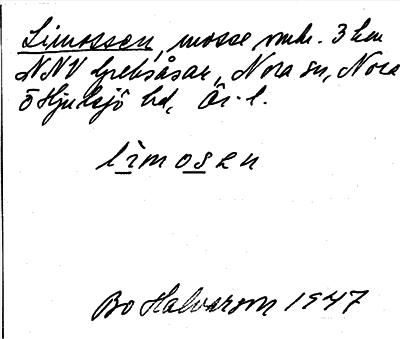 Limossen, mosse omkr. 3 km
NNV Greksåsar, Nora sn, Nora
o Hjulsjö bd, Ör. l.
limosen
Bo Halvarson 1947